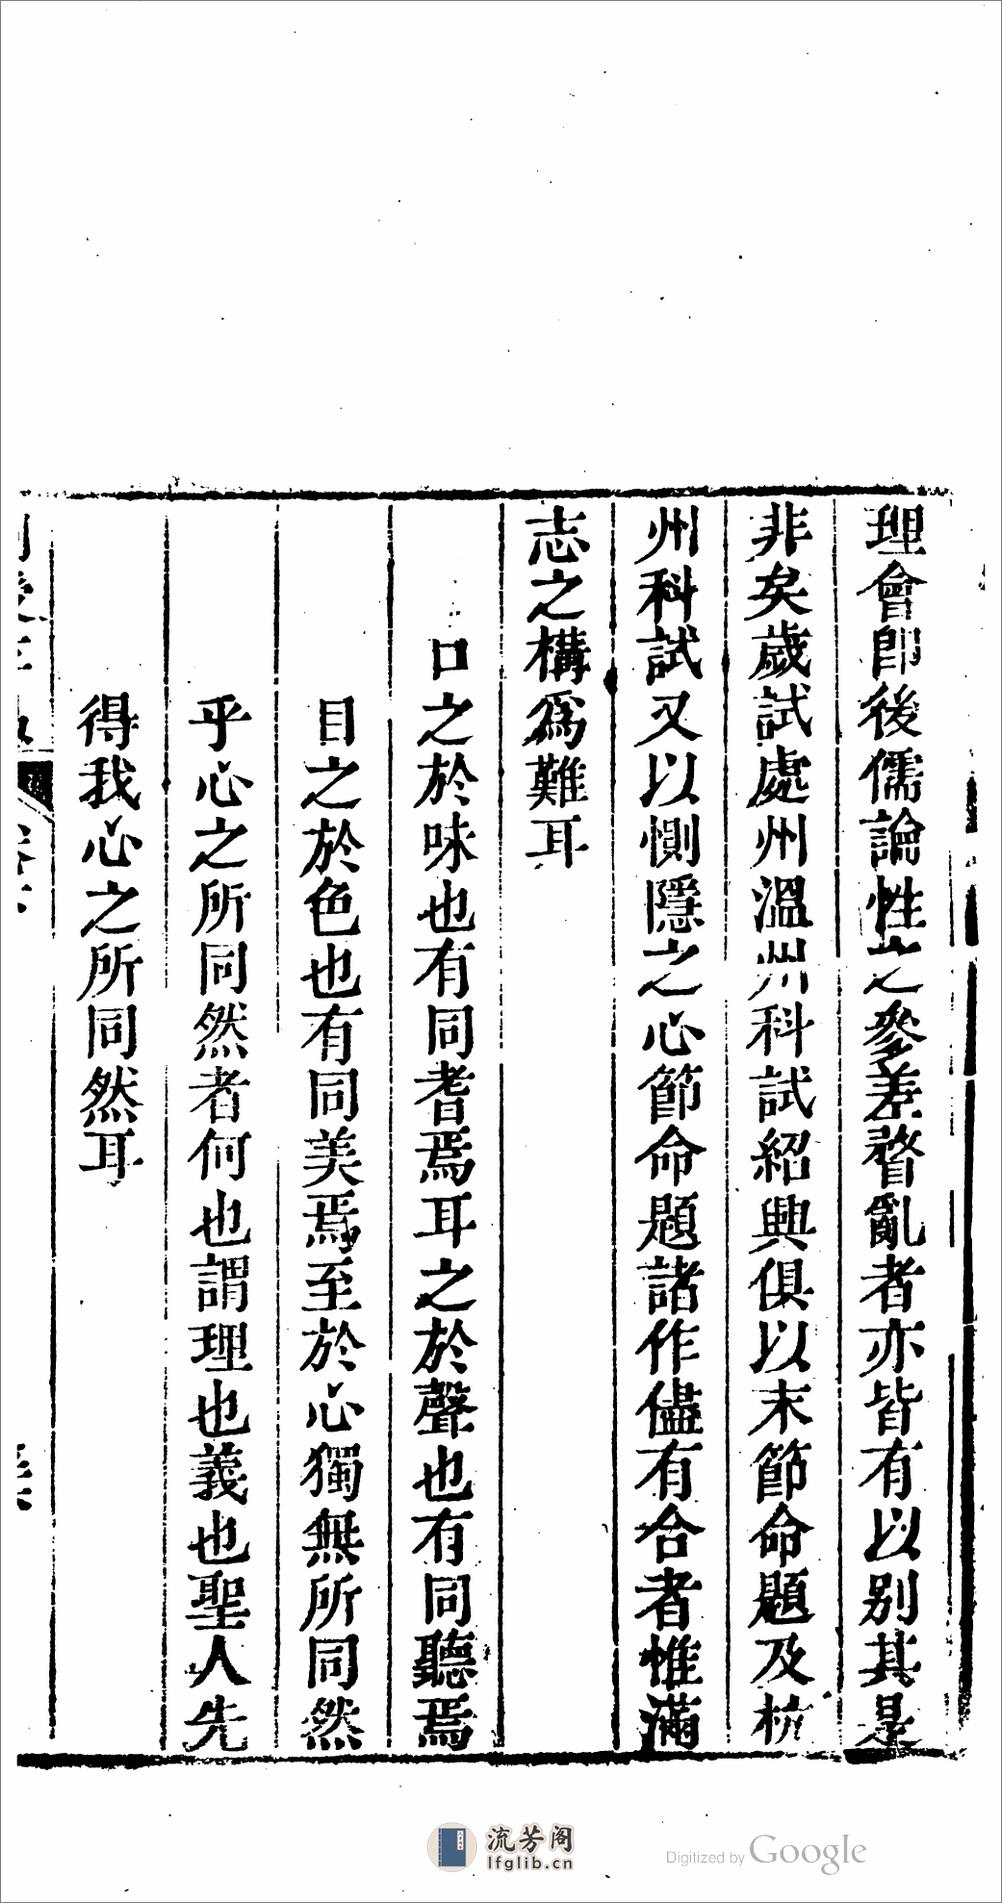 理會卽後儒論性之參差瞀亂者亦皆有以別其是
非矣歲試處州溫州科試紹興俱以末節命題及杭
州科試又以惻隱之心節命題諸作儘有合者惟滿
志之構爲難耳
口之於味也有同耆焉耳之於聲也有同聽焉
目之於色也有同美焉至於心獨無所同然
乎心之所同然者何也謂理也義也聖人先
得我心之所同然耳
流芳阁
lfglib.cn
Digitized by Google